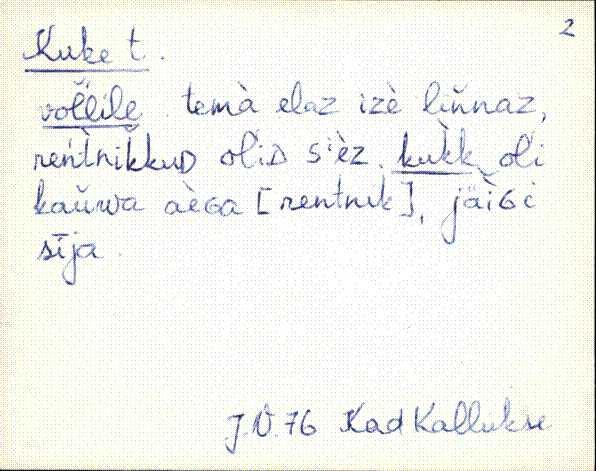 2
Kuke t.
vol̆l̆ile temà elaz izè liňnaz,
rentnikkuD oĺiD sièz. kùkk oĺi
kaŭwa àeGa [rentnik], jäìGi
sīja.
J.V.76 Kad Kallukse